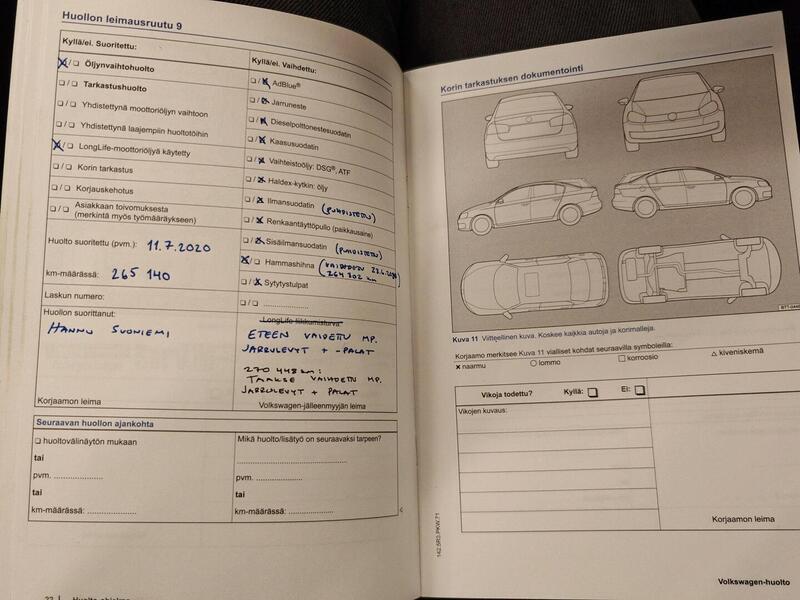 Huollon leimausruutu 9
Kyllä/ei. Suoritettu:
Öljynvaihtohuolto
Tarkastushuolto
Yhdistettynä moottoriöljyn vaihtoon
Yhdistettynä laajempiin huoltotöihin
LongLife-moottoriöljyä käytetty
Korin tarkastus
Korjauskehotus
Asiakkaan toivomuksesta
(merkintä myös työmääräykseen)
Huolto suoritettu (pvm.): 11.7.2020
km-määrässä: 265 140
Laskun numero:
Huollon suorittanut:
HANNU SUONIEMI
Korjaamon leima
Kyllä/ei. Vaihdettu:
AdBlue®
Jarruneste
Dieselpolttonestesuodatin
Kaasusuodatin
Vaihteistoöljy: DSG®, ATF
Haldex-kytkin: öljy
Ilmansuodatin (PUHDISTETTU)
Renkaantäyttöpullo (paikkausaine)
Sisäilmansuodatin (PUHDISTETTU)
Hammashihna (VAIHDETTU
264 302 KM)
Sytytystulpat
LongLife-liikkumisturva
ETEEN VAIHDETTU MP.
JARRULEVYT + -PALAT
270 448 KM:
TAAKSE VAIHDETTU MP.
JARRULEVYT + PALAT
Volkswagen-jälleenmyyjän leima
Seuraavan huollon ajankohta
huoltovälinäytön mukaan
tai
pvm. ....................
tai
km-määrässä: ....................
Mikä huolto/lisätyö on seuraavaksi tarpeen?
pvm. ....................
tai
km-määrässä: ....................
Korin tarkastuksen dokumentointi
Kuva 11 Viitteellinen kuva. Koskee kaikkia autoja ja korimalleja.
Korjaamo merkitsee Kuva 11 vialliset kohdat seuraavilla symboleilla:
x naarmu ○ lommo □ korroosio △ kiveniskemä
Vikoja todettu? Kyllä: Ei:
Vikojen kuvaus:
Korjaamon leima
142.5R3.PKW.71
Volkswagen-huolto